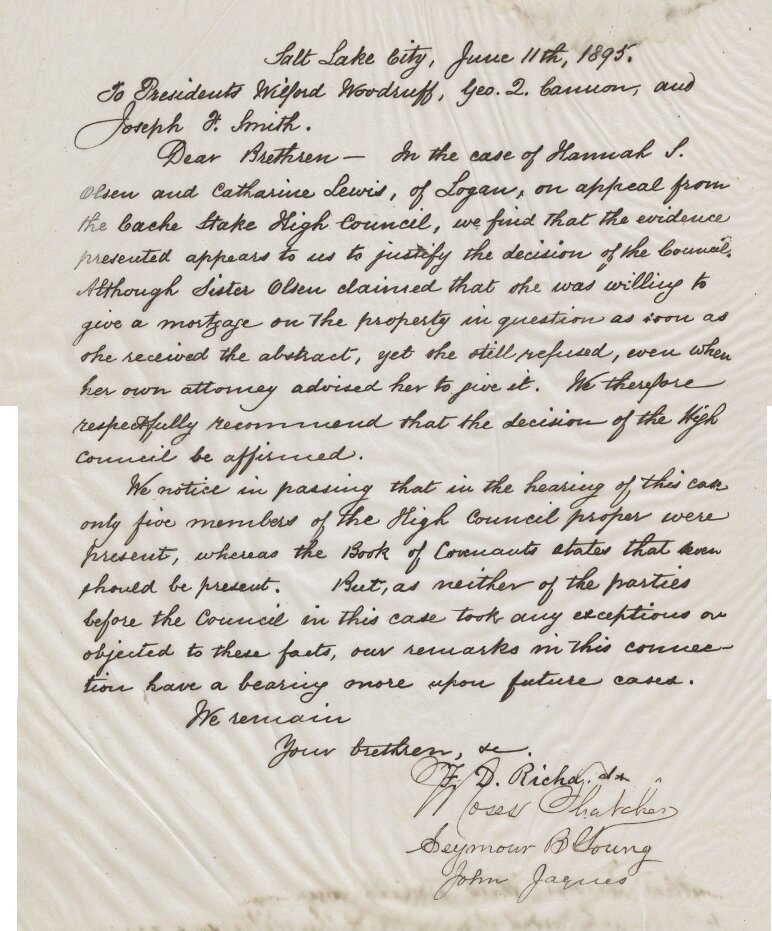 Salt Lake City, June 11th, 1895.
To Presidents Wilford Woodruff, Geo. Q. Cannon, and
Joseph F. Smith.
Dear Brethren — In the case of Hannah S.
Olsen and Catharine Lewis, of Logan, on appeal from
the Cache Stake High Council, we find that the evidence
presented appears to us to justify the decision of the Council.
Although Sister Olsen claimed that she was willing to
give a mortgage on the property in question as soon as
she received the abstract, yet she still refused, even when
her own attorney advised her to give it. We therefore
respectfully recommend that the decision of the High
Council be affirmed.
We notice in passing that in the hearing of this case
only five members of the High Council proper were
present, whereas the Book of Covenants states that seven
should be present. But, as neither of the parties
before the Council in this case took any exceptions or
objected to these facts, our remarks in this connec-
tion have a bearing more upon future cases.
We remain
Your brethren, &c.
F. D. Richards
Moses Thatcher
Seymour B Young
John Jaques